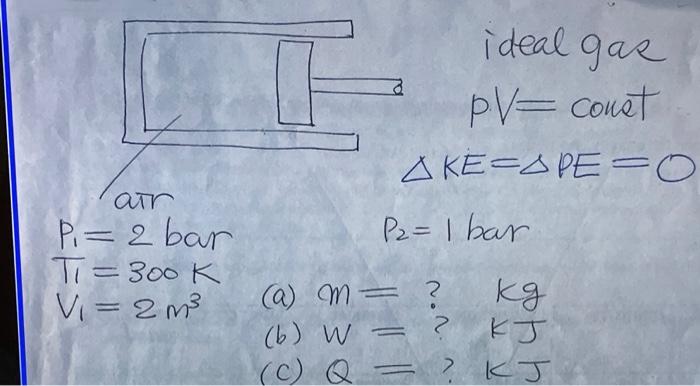 ideal gas
pV = const
ΔKE = ΔPE = 0
air
P₁ = 2 bar
P₂ = 1 bar
T₁ = 300 K
V₁ = 2 m³
(a) m = ? kg
(b) W = ? KJ
(c) Q = ? KJ